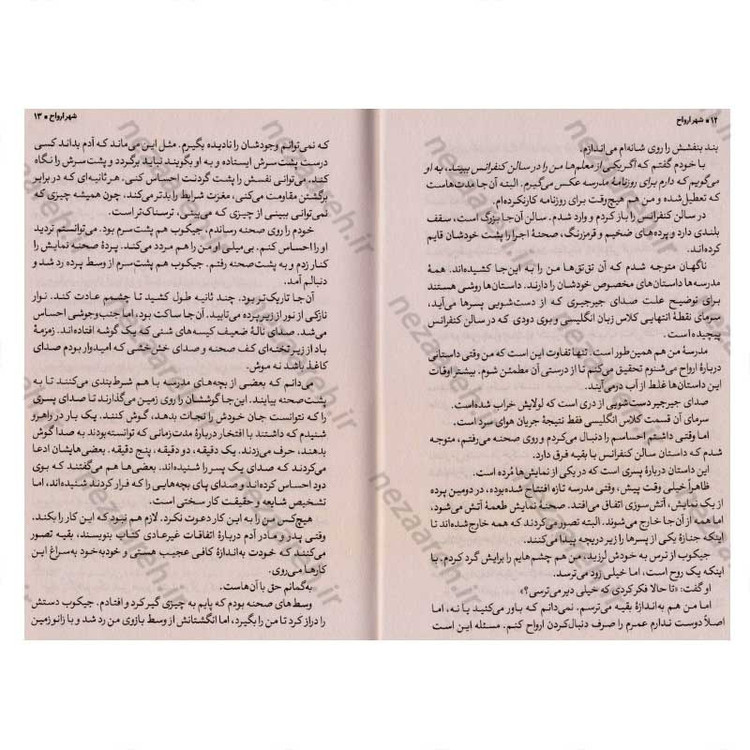 ۱۲ ■ شهر ارواح
بند بنفشش را روی شانه‌ام می‌اندازم.
با خودم گفتم که اگر یکی از معلم‌ها من را در سالن کنفرانس ببیند، به او
می‌گویم که دارم برای روزنامهٔ مدرسه عکس می‌گیرم. البته آن‌جا مدت‌هاست
که تعطیل شده و من هم هیچ‌وقت برای روزنامه کار نکرده‌ام.
در سالن کنفرانس را باز کردم و وارد شدم. سالن آن‌جا بزرگ است، سقف
بلندی دارد و پرده‌های ضخیم و قرمزرنگ، صحنهٔ اجرا را پشت خودشان قایم
کرده‌اند.
ناگهان متوجه شدم که آن تق‌تق‌ها من را به این‌جا کشیده‌اند. همهٔ
مدرسه‌ها داستان‌های مخصوص خودشان را دارند. داستان‌ها روشی هستند
برای توضیح علت صدای جیرجیری که از دست‌شویی پسرها می‌آید،
سرمای نقطهٔ انتهایی کلاس زبان انگلیسی و بوی دودی که در سالن کنفرانس
پیچیده است.
مدرسهٔ من هم همین‌طور است. تنها تفاوت این است که من وقتی داستانی
دربارهٔ ارواح می‌شنوم تحقیق می‌کنم تا از درستی آن مطمئن شوم. بیشتر اوقات
این داستان‌ها غلط از آب درمی‌آیند.
صدای جیرجیر دست‌شویی از دری است که لولایش خراب شده.
سرمای آن قسمت کلاس انگلیسی فقط نتیجهٔ جریان هوای سرد است.
اما وقتی داشتم احساسم را دنبال می‌کردم و روی صحنه می‌رفتم، متوجه
شدم که داستان سالن کنفرانس با بقیه فرق دارد.
این داستان دربارهٔ پسری است که در یکی از نمایش‌ها مُرده است.
ظاهراً خیلی وقت پیش، وقتی مدرسه تازه افتتاح شده بود، در دومین پرده
از یک نمایش، آتش‌سوزی اتفاق می‌افتد. صحنهٔ نمایش طعمهٔ آتش می‌شود،
اما همه از آن‌جا خارج می‌شوند. البته تصور می‌کردند که همه خارج شده‌اند تا
اینکه جنازهٔ یکی از پسرها را زیر دریچه پیدا می‌کنند.
جیکوب از ترس به خودش لرزید. من هم چشم‌هایم را برایش گرد کردم. با
اینکه یک روح است، اما خیلی زود می‌ترسد.
او گفت: «تا حالا فکر کردی که خیلی دیر می‌ترسی؟»
اما من هم به‌اندازهٔ بقیه می‌ترسم. نمی‌دانم که باور می‌کنید یا نه، اما
اصلاً دوست ندارم عمرم را صرف دنبال‌کردن ارواح کنم. مسئله این است
شهر ارواح ■ ۱۳
که نمی‌توانم وجودشان را نادیده بگیرم. مثل این می‌ماند که آدم بداند کسی
درست پشت‌سرش ایستاده و به او بگویند نباید برگردد و پشت‌سرش را نگاه
کند. می‌توانی نفسش را پشت گردنت احساس کنی. هر ثانیه‌ای که در برابر
برگشتن مقاومت می‌کنی، مغزت شرایط را بدتر می‌کند، چون همیشه چیزی که
نمی‌توانی ببینی از چیزی که می‌بینی، ترسناک‌تر است.
خودم را روی صحنه رساندم، جیکوب هم پشت‌سرم بود. می‌توانستم تردید
او را احساس کنم. بی‌میلی او من را هم مردد می‌کند. پردهٔ صحنه نمایش را
کنار زدم و به پشت صحنه رفتم. جیکوب هم پشت‌سرم از وسط پرده رد شد و
دنبالم آمد.
آن‌جا تاریک‌تر بود. چند ثانیه طول کشید تا چشمم عادت کند. نوار
نازکی از نور از زیر پرده می‌تابید. آن‌جا ساکت بود، اما جنب‌وجوشی احساس
می‌شد. صدای نالهٔ ضعیف کیسه‌های شنی که یک گوشه افتاده‌اند. زمزمهٔ
باد از زیر تخته‌ای کف صحنه و صدای خش‌خشی که امیدوار بودم صدای
کاغذ باشد نه موش.
می‌دانم که بعضی از بچه‌های مدرسه با هم شرط‌بندی می‌کنند تا به
پشت صحنه بیایند. این‌جا گوششان را روی زمین می‌گذارند تا صدای پسری
را که نتوانست جان خودش را نجات بدهد، گوش کنند. یک بار در راهرو
شنیدم که داشتند با افتخار دربارهٔ مدت‌زمانی که توانسته بودند به صدا گوش
بدهند، حرف می‌زدند. یک دقیقه، دو دقیقه، پنج دقیقه. بعضی‌هایشان ادعا
می‌کردند که صدای یک پسر را شنیده‌اند. بعضی‌ها هم می‌گفتند که بوی
دود احساس کرده‌اند و صدای پای بچه‌هایی را که فرار کردند شنیده‌اند، اما
تشخیص شایعه و حقیقت کار سختی است.
هیچ‌کس من را به این کار دعوت نکرد. لازم هم نبود که این کار را بکند.
وقتی پدر و مادر آدم دربارهٔ اتفاقات غیرعادی کتاب بنویسند، بقیه تصور
می‌کنند که خودت به‌اندازهٔ کافی عجیب هستی و خودبه‌خود به‌سراغ این
کارها می‌روی.
به‌گمانم حق با آن‌هاست.
وسط‌های صحنه بودم که پایم به چیزی گیر کرد و افتادم. جیکوب دستش
را دراز کرد تا من را بگیرد، اما انگشتانش از وسط بازوی من رد شد و با زانو زمین
nezaareh.ir